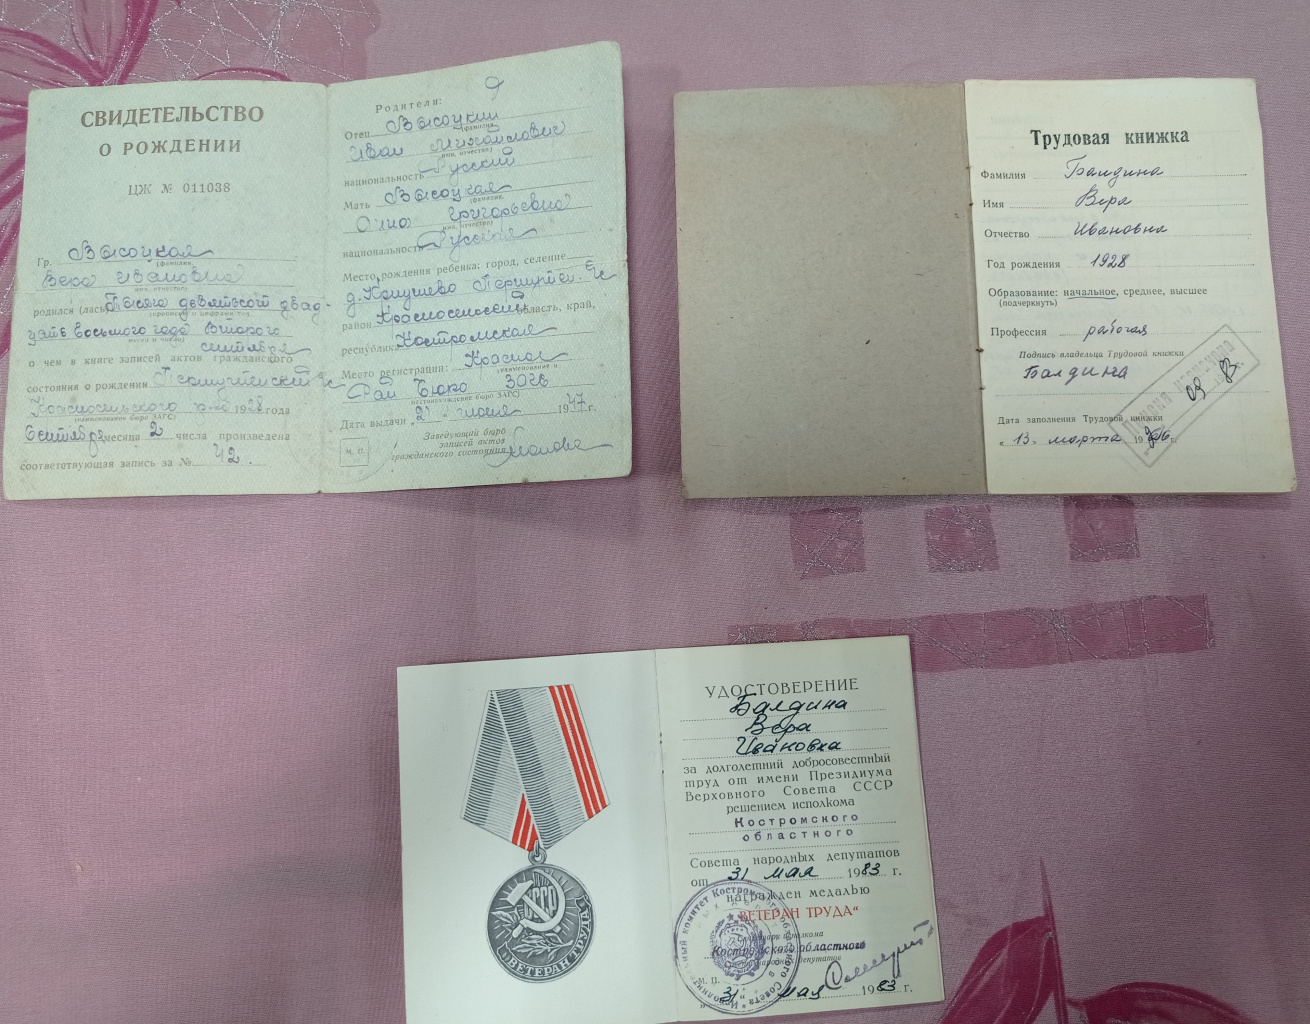 СВИДЕТЕЛЬСТВО
О РОЖДЕНИИ
ЦЖ № 011038
Гр. Высоцкая
(фамилия,
Вера Ивановна
имя, отчество)
родился (лась) Тысяча девятьсот двад-
цать восьмого года Второго
сентября
о чем в книге записей актов гражданского
состояния о рождении
Красносельского р-на 1928 года
(наименование бюро ЗАГС)
Сентября месяца 2 числа произведена
соответствующая запись за № 42.
Родители:
Отец Высоцкий
(фамилия,
Иван Михайлович
имя, отчество)
национальность Русский
Мать Высоцкая
(фамилия,
Анна Григорьевна
имя, отчество)
национальность Русская
Место рождения ребенка: город, селение
д.
район Красносельский область, край,
республика Костромская
Место регистрации: Красное
(наименование и
Рай Бюро ЗАГС
местонахождение бюро ЗАГС)
Дата выдачи 21 июля 1947 г.
М. П.
Заведующий бюро
записи актов
гражданского состояния
Трудовая книжка
Фамилия Балдина
Имя Вера
Отчество Ивановна
Год рождения 1928
Образование: начальное, среднее, высшее
(подчеркнуть)
Профессия рабочая
Подпись владельца Трудовой книжки
Балдина
Дата заполнения Трудовой книжки
"13" марта 1956 г.
УДОСТОВЕРЕНИЕ
Балдина
Вера
Ивановна
за долголетний добросовестный
труд от имени Президиума
Верховного Совета СССР
решением исполкома
Костромского
областного
Совета народных депутатов
от 31 мая 1983 г.
награжден медалью
"ВЕТЕРАН ТРУДА"
Костромского областного
М. П.
"31" мая 1983 г.
СССР
ВЕТЕРАН ТРУДА